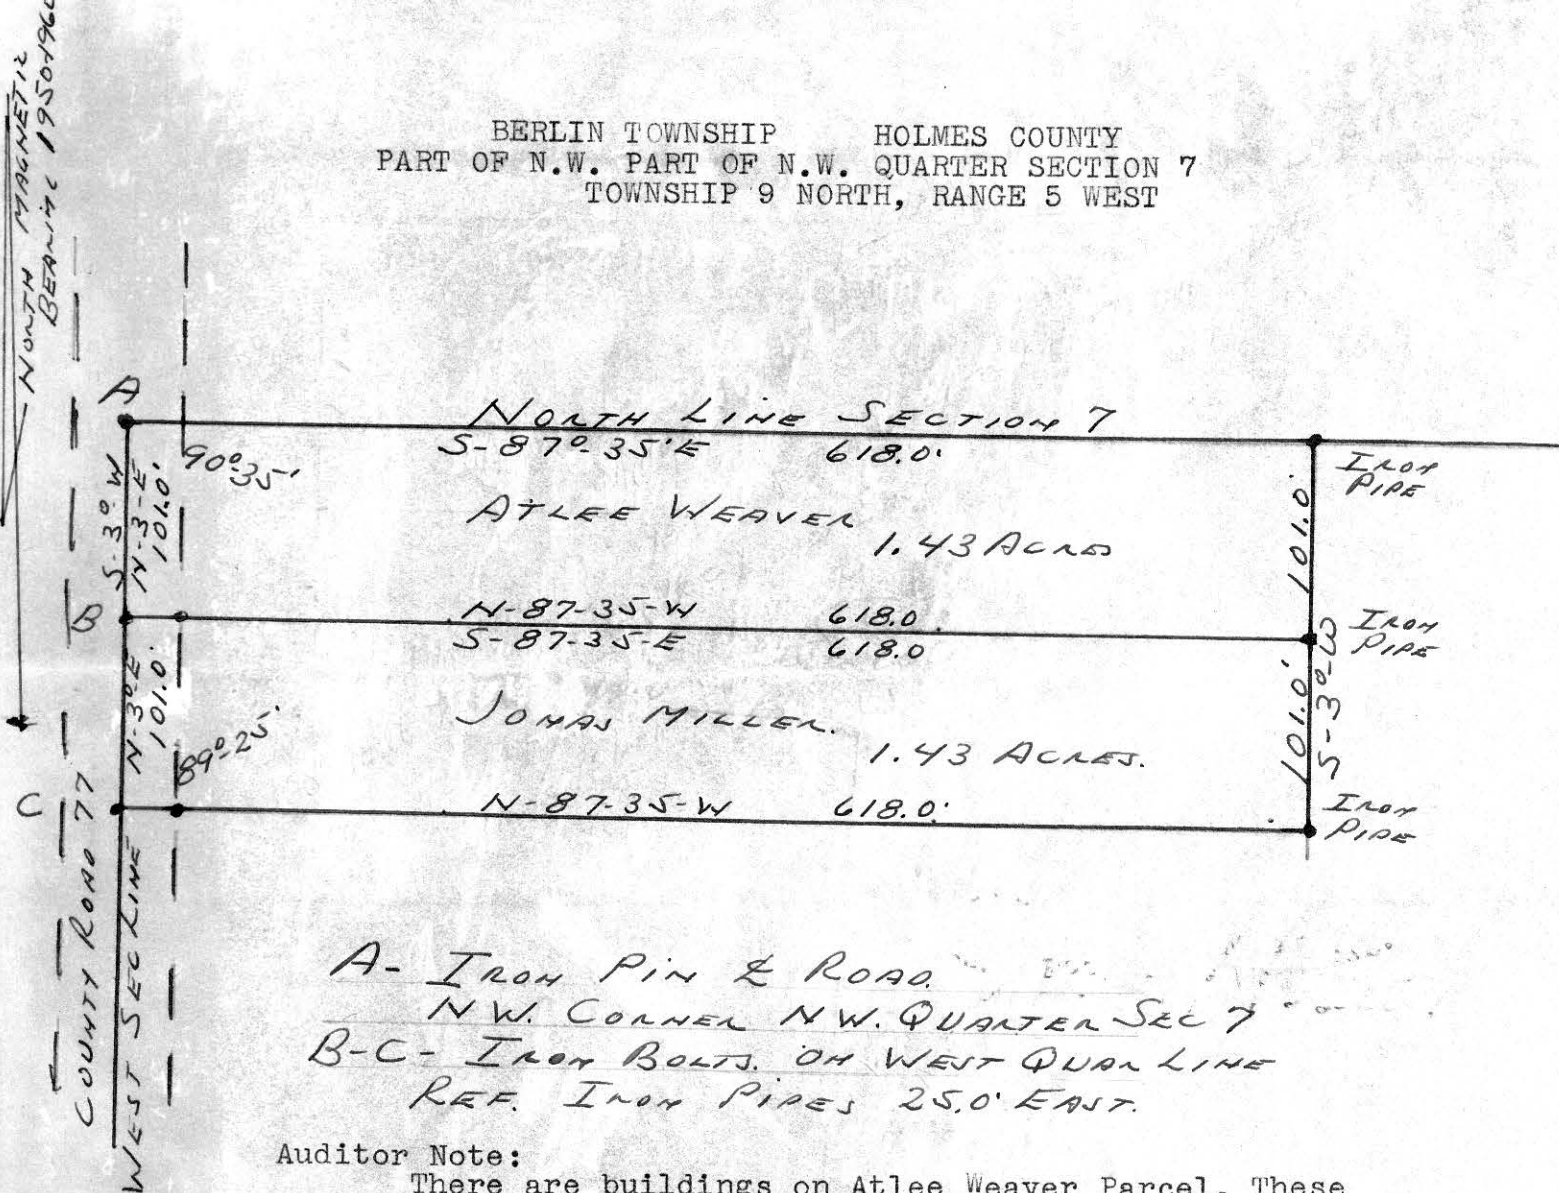 NORTH MAGNETIC
BEARING 1950-1960
BERLIN TOWNSHIP HOLMES COUNTY
PART OF N.W. PART OF N.W. QUARTER SECTION 7
TOWNSHIP 9 NORTH, RANGE 5 WEST
A
NORTH LINE SECTION 7
S-87°-35'E 618.0'
90°-35'
IRON
PIPE
S-3°-W
N-3-E
101.0'
ATLEE WEAVER
1.43 ACRES
101.0'
B
N-87-35-W 618.0
S-87-35-E 618.0
IRON
PIPE
N-3°-E
101.0'
JONAS MILLER.
1.43 ACRES.
101.0'
S-3°-W
89°-25'
C
N-87-35-W 618.0'
IRON
PIPE
COUNTY ROAD 77
WEST SEC LINE
A- IRON PIN ℄ ROAD.
N W. CORNER N W. QUARTER SEC 7
B-C- IRON BOLTS. ON WEST QUAR LINE
REF. IRON PIPES 25.0' EAST.
Auditor Note:
There are buildings on Atlee Weaver Parcel. These